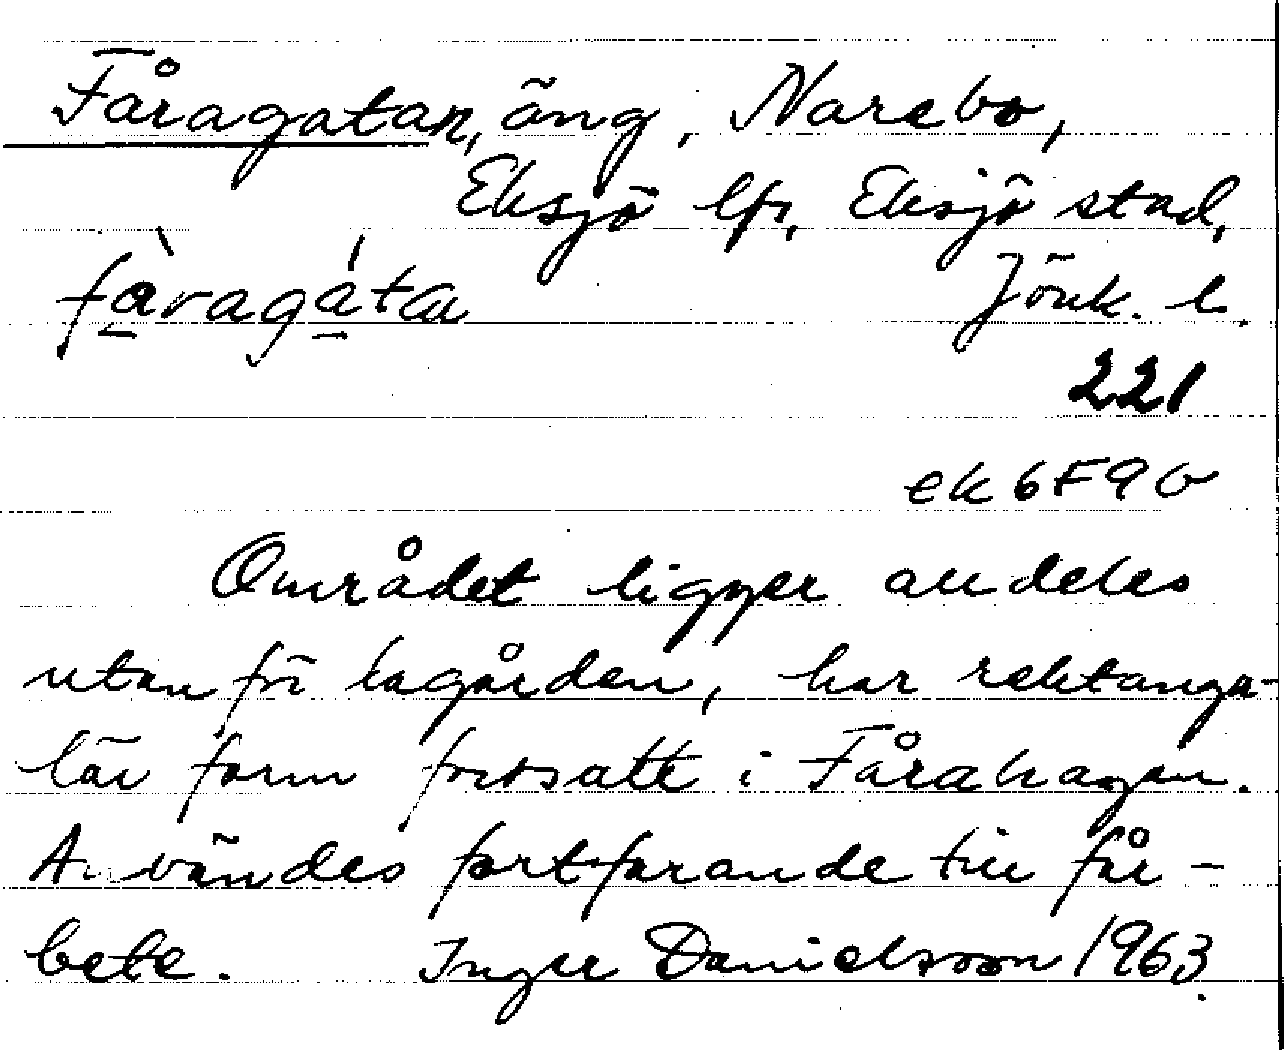 Fåragatan, äng, Narebo,
Eksjö lfs, Eksjö stad,
fàragáta Jönk. l.
221
ek 6F9b
Området ligger alldeles
utanför lagården, har rektangu-
lär form fortsatt i Fårahagen.
Användes fortfarande till får-
bete. Inger Danielsson 1963.